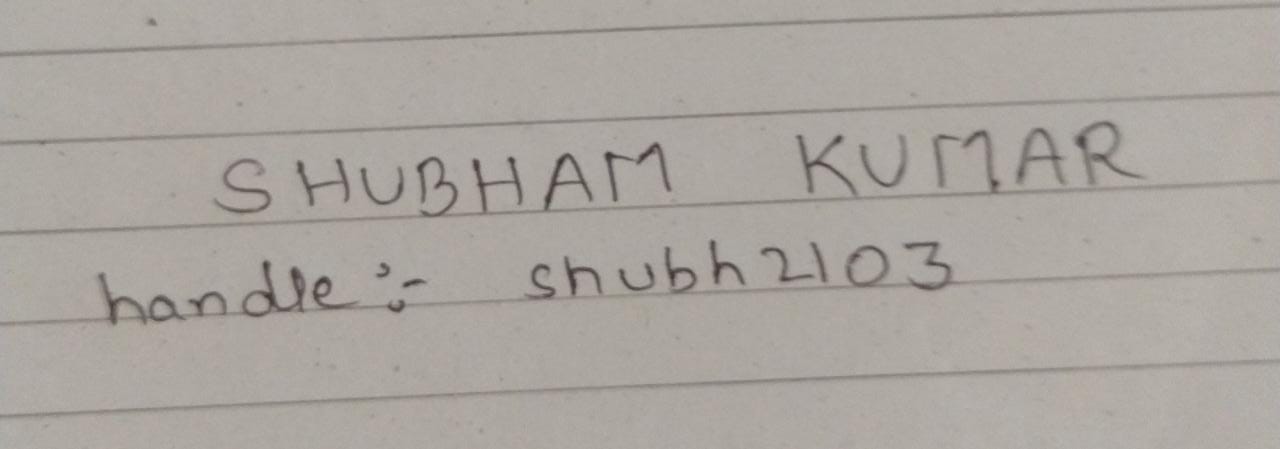 SHUBHAM KUMAR
handle :- shubh2103